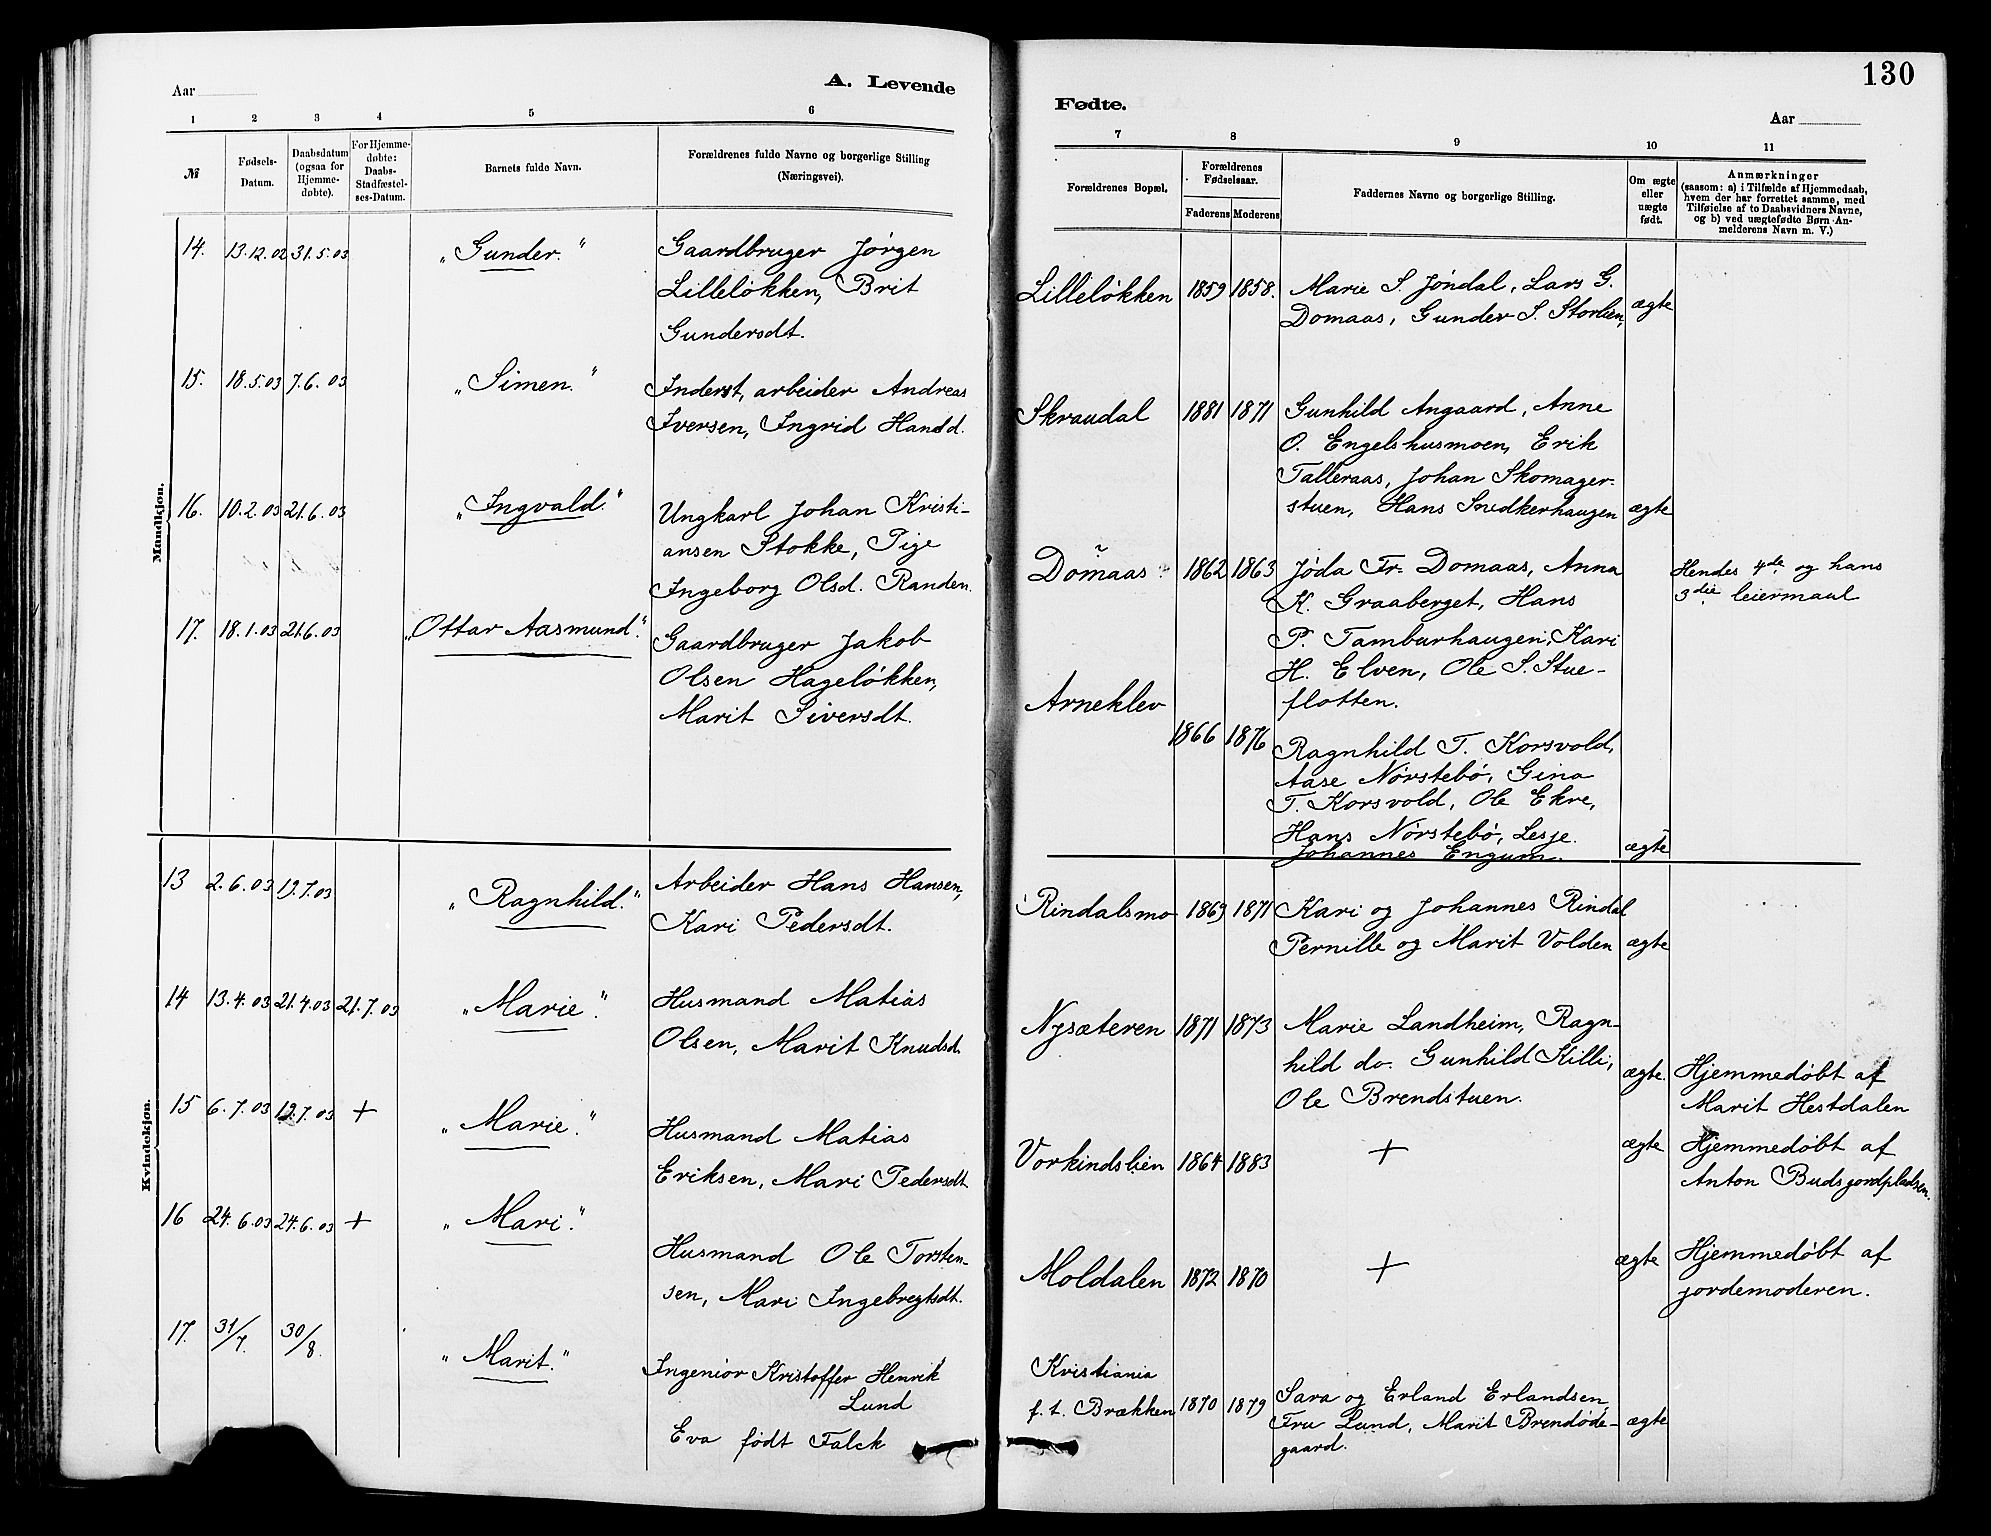 Aar
A. Levende
1 2 3 4 5 6
№
Fødsels-Datum.
Daabsdatum (ogsaa for Hjemmedøbte).
For Hjemmedøbte: Daabs-Stadfæstelses-Datum.
Barnets fulde Navn.
Forældrenes fulde Navne og borgerlige Stilling (Næringsvei).
Mandkjøn.
14. 13.12.02 31.5.03 "Gunder." Gaardbruger Jørgen
Lilleløkken, Brit
Gundersdt.
15. 18.5.03 7.6.03 "Simen." Inderst, arbeider Andreas
Iversen, Ingrid Hansd.
16. 10.2.03 21.6.03 "Ingvald." Ungkarl Johan Kristi-
ansen Stokke, Pige
Ingeborg Olsd. Randen.
17. 18.1.03 21.6.03 "Ottar Aasmund." Gaardbruger Jakob
Olsen Hageløkken,
Marit Siversdt.
Kvindekjøn.
13 2.6.03 19.7.03 "Ragnhild." Arbeider Hans Hansen,
Kari Pedersdt.
14 13.4.03 21.4.03 21.7.03 "Marie." Husmand Matias
Olsen, Marit Knudsd.
15 6.7.03 19.7.03 + "Marie." Husmand Matias
Eriksen, Mari Pedersdt
16 24.6.03 24.6.03 + "Mari." Husmand Ole Torsten-
sen, Mari Ingebregtsdt.
17. 31/7. 30/8. "Marit." Ingeniør Kristoffer Henrik
Lund
Eva født Falck
130
Fødte.
Aar
7 8 9 10 11
Forældrenes Bopæl.
Forældrenes Fødselsaar.
Faderens Moderens
Faddernes Navne og borgerlige Stilling.
Om ægte eller uægte født.
Anmærkninger
(saasom: a) i Tilfælde af Hjemmedaab,
hvem der har forrettet samme, med
Tilføielse af to Daabsvidners Navne,
og b) ved uægtefødte Børn An-
melderens Navn m. V.)
Lilleløkken 1859 1858. Marie S. Jøndal, Lars G.
Domaas, Gunder S. Storlien, ægte
Skraudal 1881 1871 Gunhild Angaard, Anne
O. Engelshusmoen, Erik
Talleraas, Johan Skomager-
stuen, Hans Snedkerhaugen ægte
Domaas 1862 1863 Jøda Fr. Domaas, Anna
K. Graaberget, Hans
P. Tamburhaugen, Kari
H. Elven, Ole S. Stue-
flotten.
Hendes 4de og hans
3die leiermaal
Arneklev 1866 1876 Ragnhild T. Korsvold,
Aase Nørstebø, Gina
T. Korsvold, Ole Ekre,
Hans Nørstebø, Lesje.
Johannes Engum. ægte
Rindalsmo 1869 1871 Kari og Johannes Rindal
Pernille og Marit Volden ægte
Nysæteren 1871 1873 Marie Landheim, Ragn-
hild do. Gunhild Killi,
Ole Brendstuen. ægte. Hjemmedøbt af
Marit Hestdalen
Vorkindslien 1864 1883 + ægte Hjemmedøbt af
Anton Budsjordpladsen.
Moldalen 1872 1870 + ægte Hjemmedøbt af
jordemoderen.
Kristiania
f. t. Brækken 1870 1879 Sara og Erland Erlandsen,
Fru Lund, Marit Brendøde-
gaard. ægte